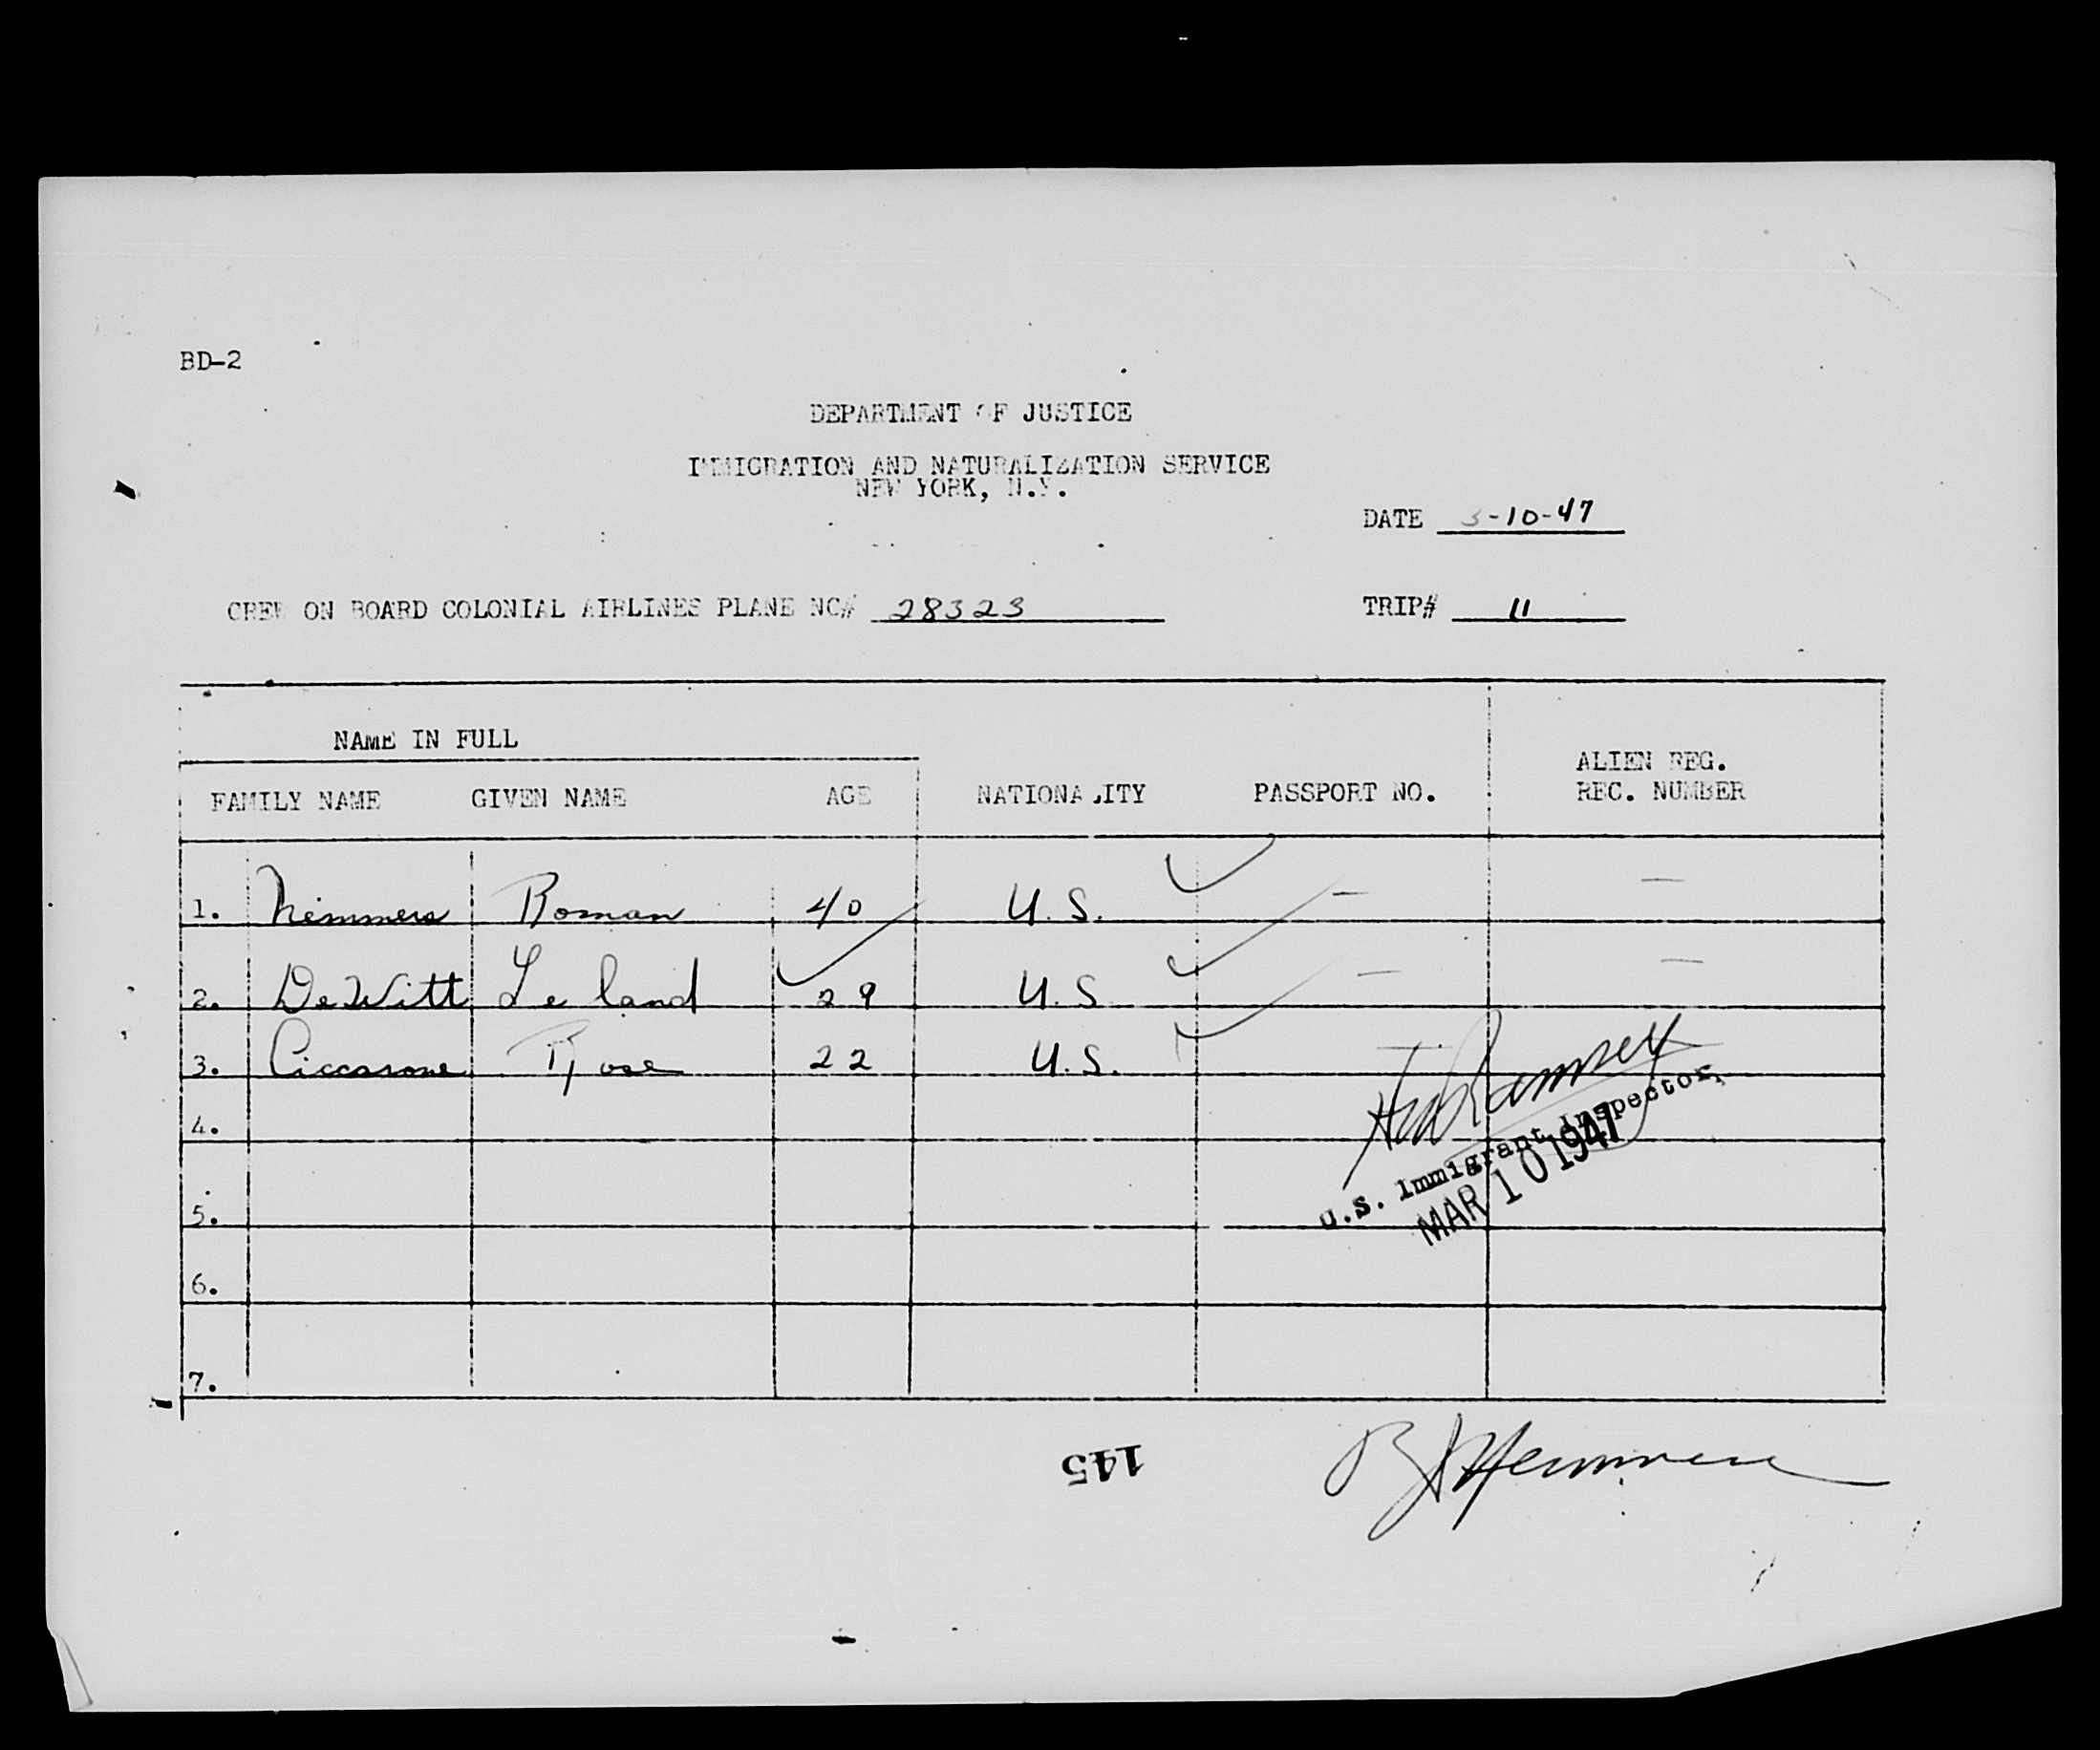 BD-2
DEPARTMENT OF JUSTICE
IMMIGRATION AND NATURALIZATION SERVICE
NEW YORK, N.Y.
DATE 3-10-47
CREW ON BOARD COLONIAL AIRLINES PLANE NC# 28323 TRIP# 11
NAME IN FULL
FAMILY NAME GIVEN NAME AGE NATIONALITY PASSPORT NO. ALIEN REG. REC. NUMBER
1. Nemmers Roman 40 U.S. — —
2. DeWitt Leland 29 U.S — —
3. Ciccarone Rose 22 U.S. —
Ramsey
U.S. Immigrant Inspector,
MAR 10 1947
4.
5.
6.
7.
145